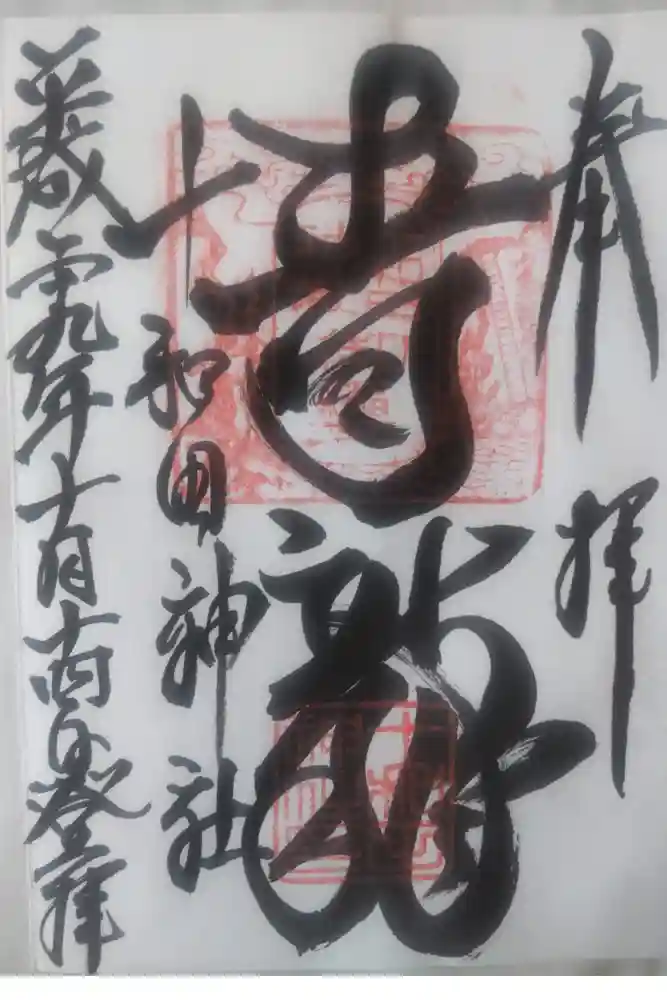 奉拝
青龍
十和田神社
平成二十九年十月十四日登拝